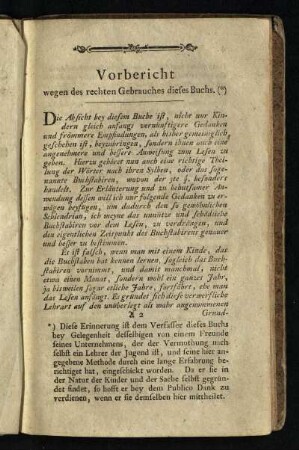 Vorbericht
wegen des rechten Gebrauches dieses Buchs. (*)
Die Absicht bey diesem Buche ist, nicht nur Kin-
dern gleich anfangs vernünftigere Gedanken
und frömmere Empfindungen, als bisher gemeiniglich
geschehen ist, beyzubringen, sondern ihnen auch eine
angenehmere und bessere Anweisung zum Lesen zu
geben. Hierzu gehöret nun auch eine richtige Thei-
lung der Wörter nach ihren Sylben, oder das soge-
nannte Buchstabiren, wovon der 5te §. besonders
handelt. Zur Erläuterung und zu behutsamer An-
wendung dessen will ich nur folgende Gedanken zu er-
wägen beyfügen, um dadurch den so gewöhnlichen
Schlendrian, ich meyne das unnütze und schädliche
Buchstabiren vor dem Lesen, zu verdrängen, und
den eigentlichen Zeitpunkt des Buchstabirens genauer
und besser zu bestimmen.
Es ist falsch, wenn man mit einem Kinde, das
die Buchstaben hat kennen lernen, sogleich das Buch-
stabiren vornimmt, und damit manchmal, nicht
etwa einen Monat, sondern wohl ein ganzes Jahr,
ja bisweilen sogar etliche Jahre, fortfähret, ehe man
das Lesen anfängt. Es gründet sich diese verwerfliche
Lehrart auf den unüberlegt als wahr angenommenen
A 2 Grund-
*) Diese Erinnerung ist dem Verfasser dieses Buchs
bey Gelegenheit desselbigen von einem Freunde
seines Unternehmens, der der Vermuthung nach
selbst ein Lehrer der Jugend ist, und seine hier an-
gegebene Methode durch eine lange Erfahrung be-
richtiget hat, eingeschickt worden. Da er sie in
der Natur der Kinder und der Sache selbst gegrün-
det findet, so hofft er bey dem Publico Dank zu
verdienen, wenn er sie demselben hier mittheilet.